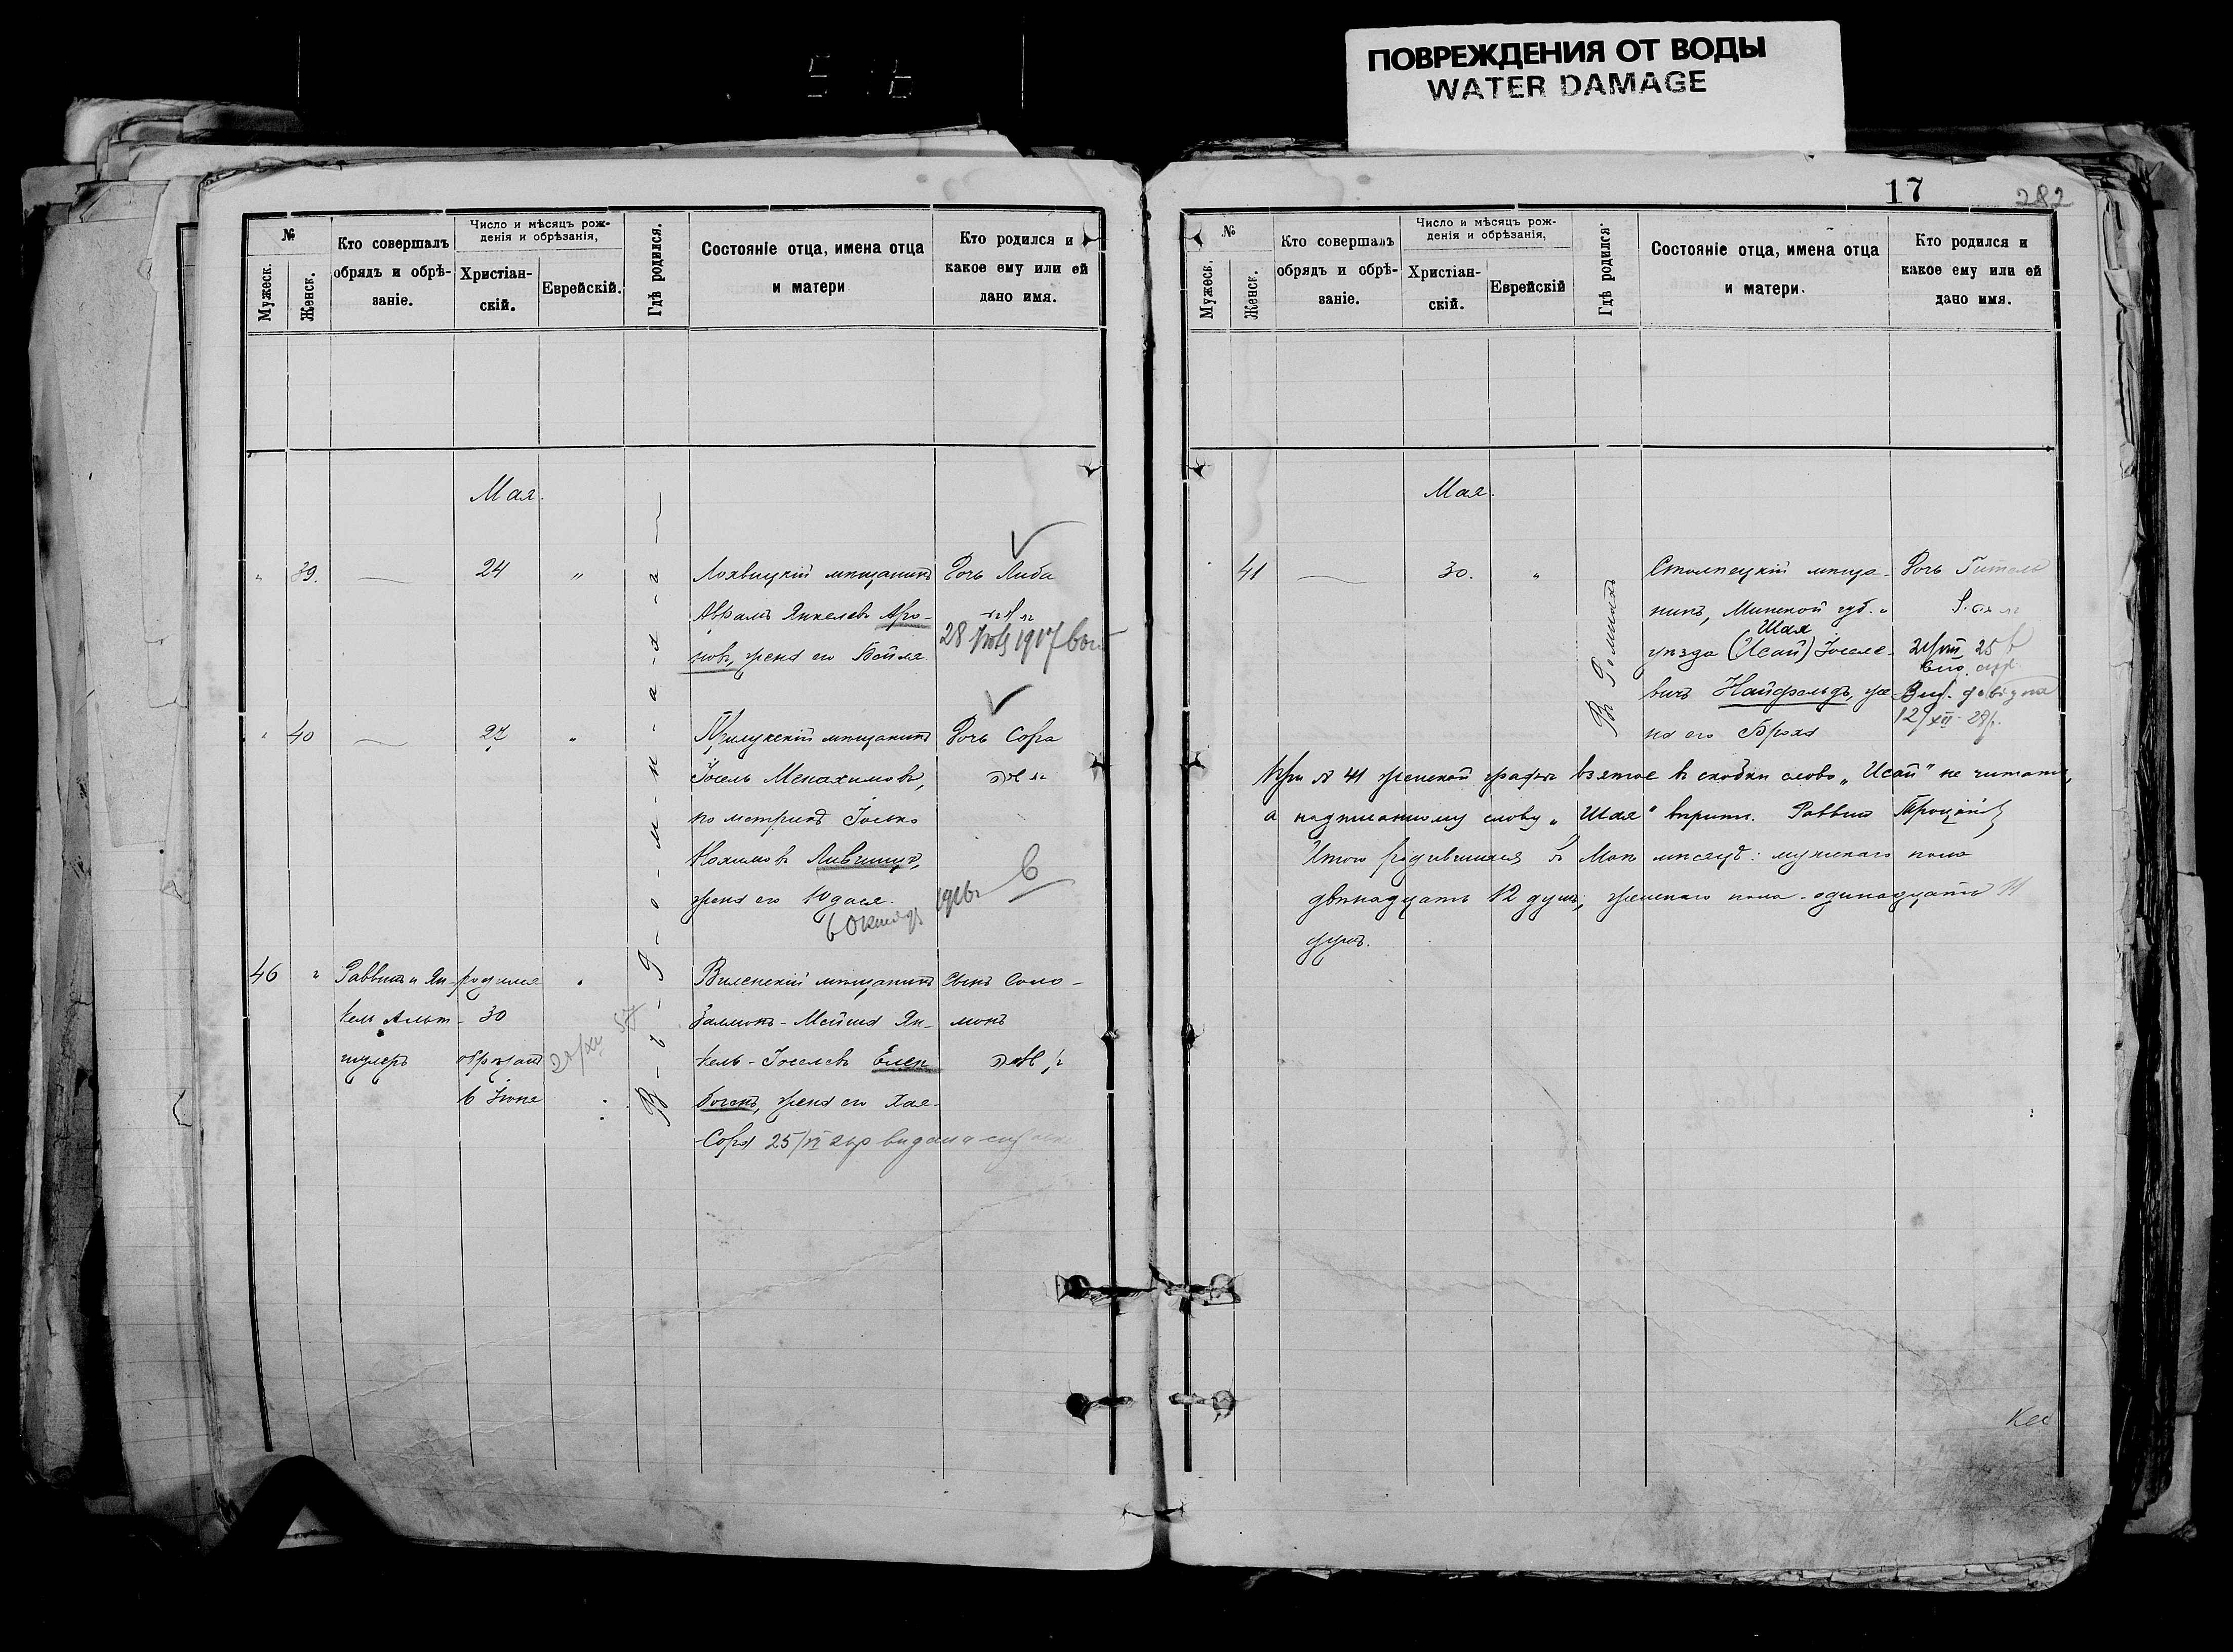 ПОВРЕЖДЕНИЯ ОТ ВОДЫ
WATER DAMAGE
№
Мужеск.
Женск.
Кто совершалъ
обрядъ и обрѣ-
заніе.
Число и мѣсяцъ рож-
денія и обрѣзанія,
Христіан-
скій.
Еврейскій.
Гдѣ родился.
Состояніе отца, имена отца
и матери
Кто родился и
какое ему или ей
дано имя.
Мая.
39.
24
"
Лохвицкій мѣщанинъ
Абрамъ Янкелевъ Аро-
новъ, жена его Бейля
Дочь Либа
28 1917
40
27
"
Прилукскій мѣщанинъ
Іосель Менахимовъ,
по метрикѣ Іосько
Нохимовъ Лившицъ,
жена его Юдася.
6 Октября 1916г
Дочь Сора
46
"
Раввинъ и Ян-
кель Альт-
шулеръ
родился
30
обрѣзанъ
6 Іюня
Виленскій мѣщанинъ
Залманъ-Мейша Ян-
кель-Іоселевъ Елен-
богенъ, жена его Хая-
Сора 25/VI выдана
Сынъ Соло-
монъ
В-ъ-Р-о-м-н-а-х-а
17
282
№
Мужеск.
Женск.
Кто совершалъ
обрядъ и обрѣ-
заніе.
Число и мѣсяцъ рож-
денія и обрѣзанія,
Христіан-
скій.
Еврейскій
Гдѣ родился.
Состояніе отца, имена отца
и матери.
Кто родился и
какое ему или ей
дано имя.
Мая.
41
30.
"
Столпецкій мѣща-
нинъ, Минской губ. и
Шая
уѣзда (Исай) Іоселе-
вичъ Найфельдъ, же-
на его Броха
Дочь Гитель
При № 41 женской графы взятое въ скобки слово "Исай" не читать,
а надписанному слову "Шая" вѣрить. Раввинъ Троцкій
Итого родившихся въ Маѣ мѣсяцѣ: мужскаго пола
двѣнадцать 12 душъ, женскаго пола одинадцать 11
душъ.